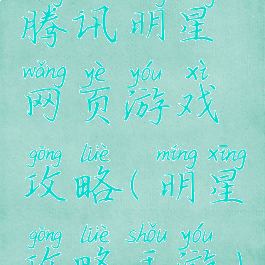 腾讯明星
wǎng yè yóu xì
网页游戏
gōng lüè míng xīng
攻略(明星
gōng lüè shǒu yóu
攻略手游)